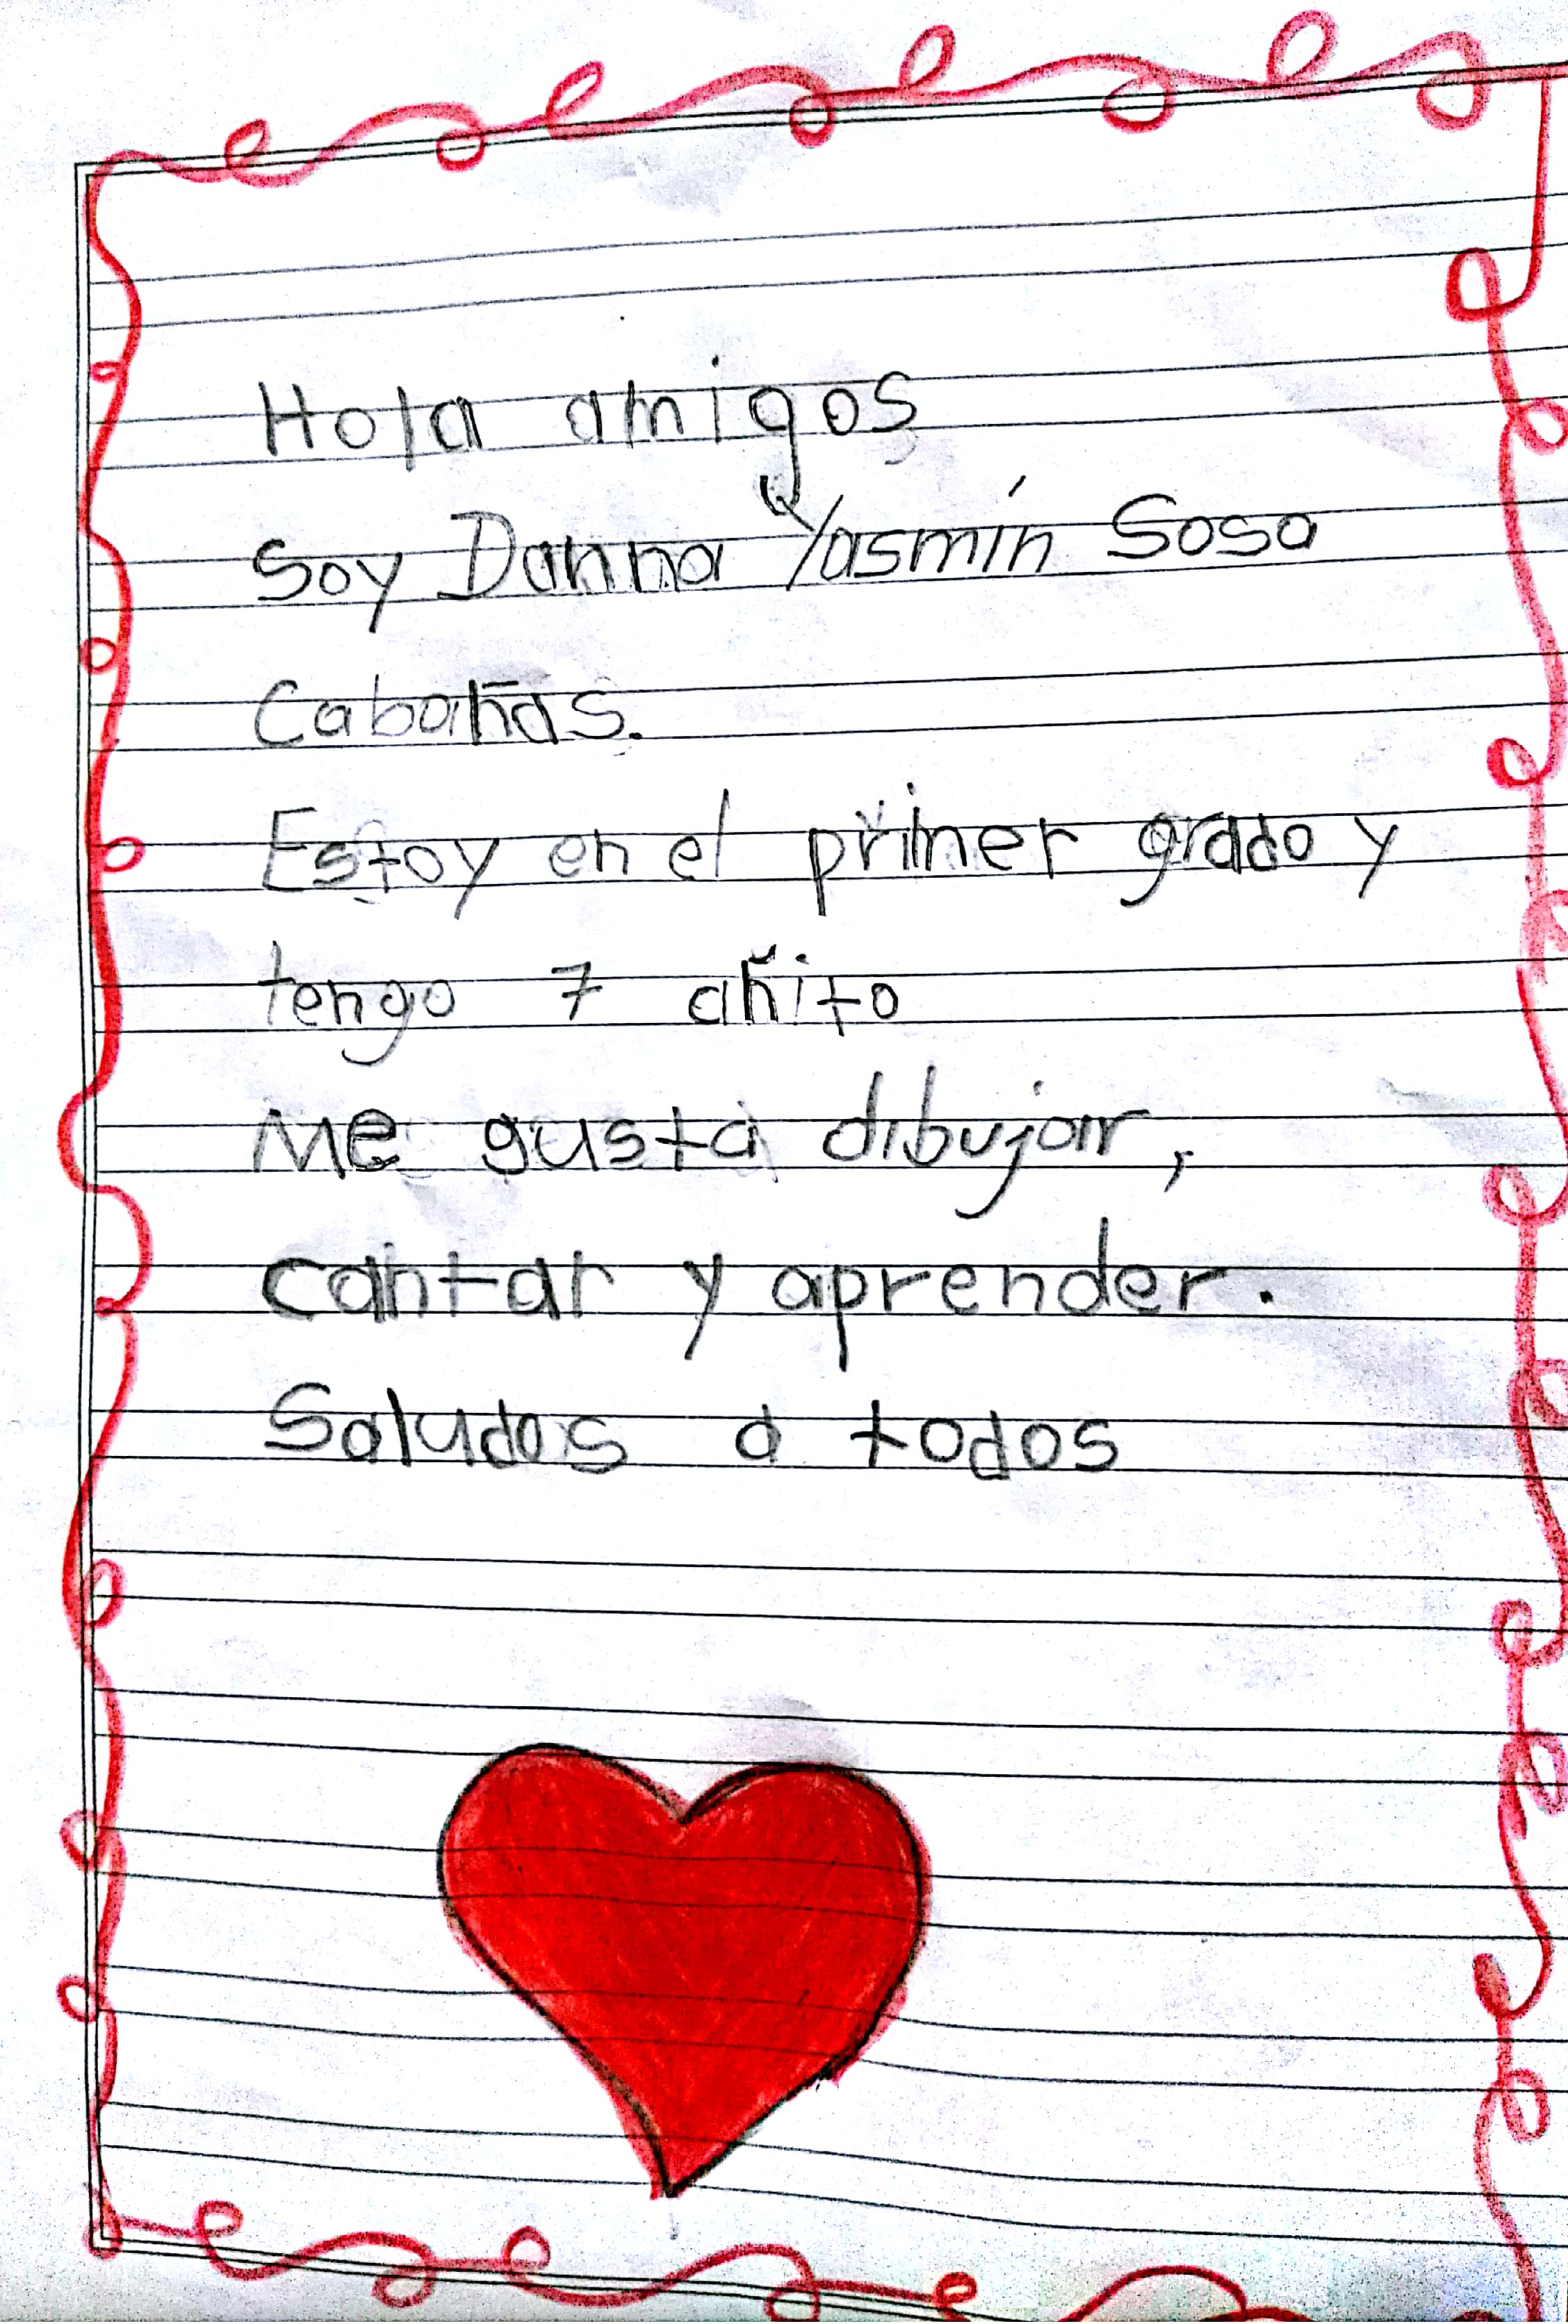 Hola amigos
Soy Danna Yasmín Sosa
Cabañas.
Estoy en el primer grado y
tengo 7 añito
Me gusta dibujar,
cantar y aprender.
Saludos a todos